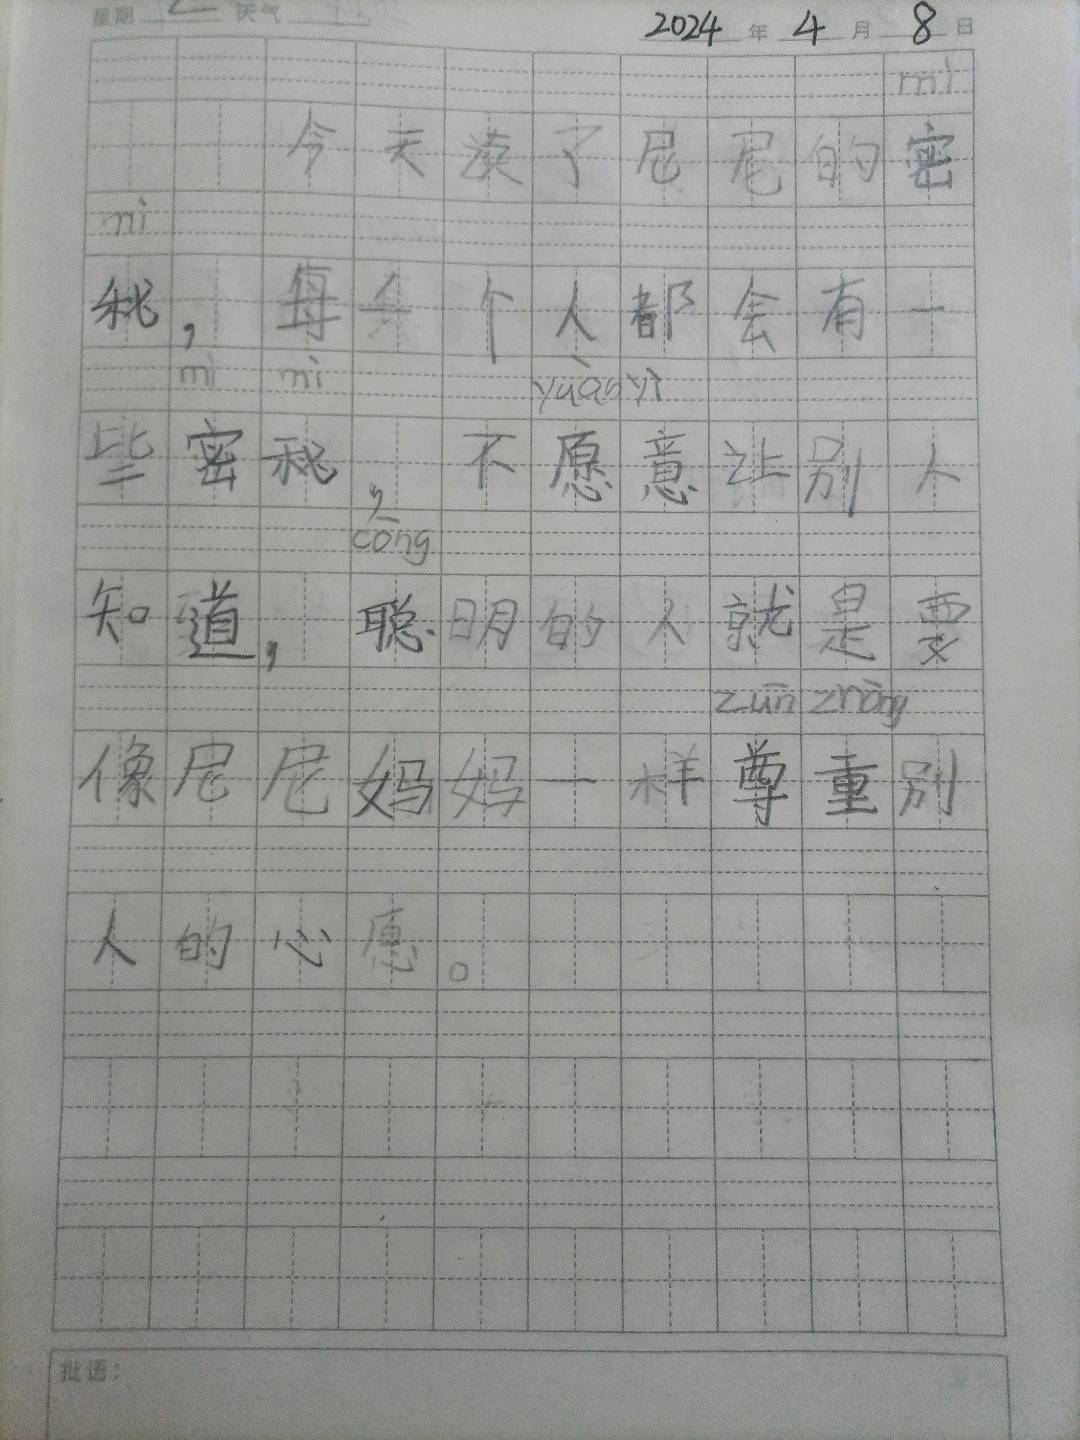 星期 二 天气
2024 年 4 月 8 日
mì
今天读了尼尼的密
mì
秘，每个人都会有一
mì mì yuàn yì
些密秘，不愿意让别人
cōng
知道，聪明的人就是要
zūn zhòng
像尼尼妈妈一样尊重别
人的心愿。
批语：